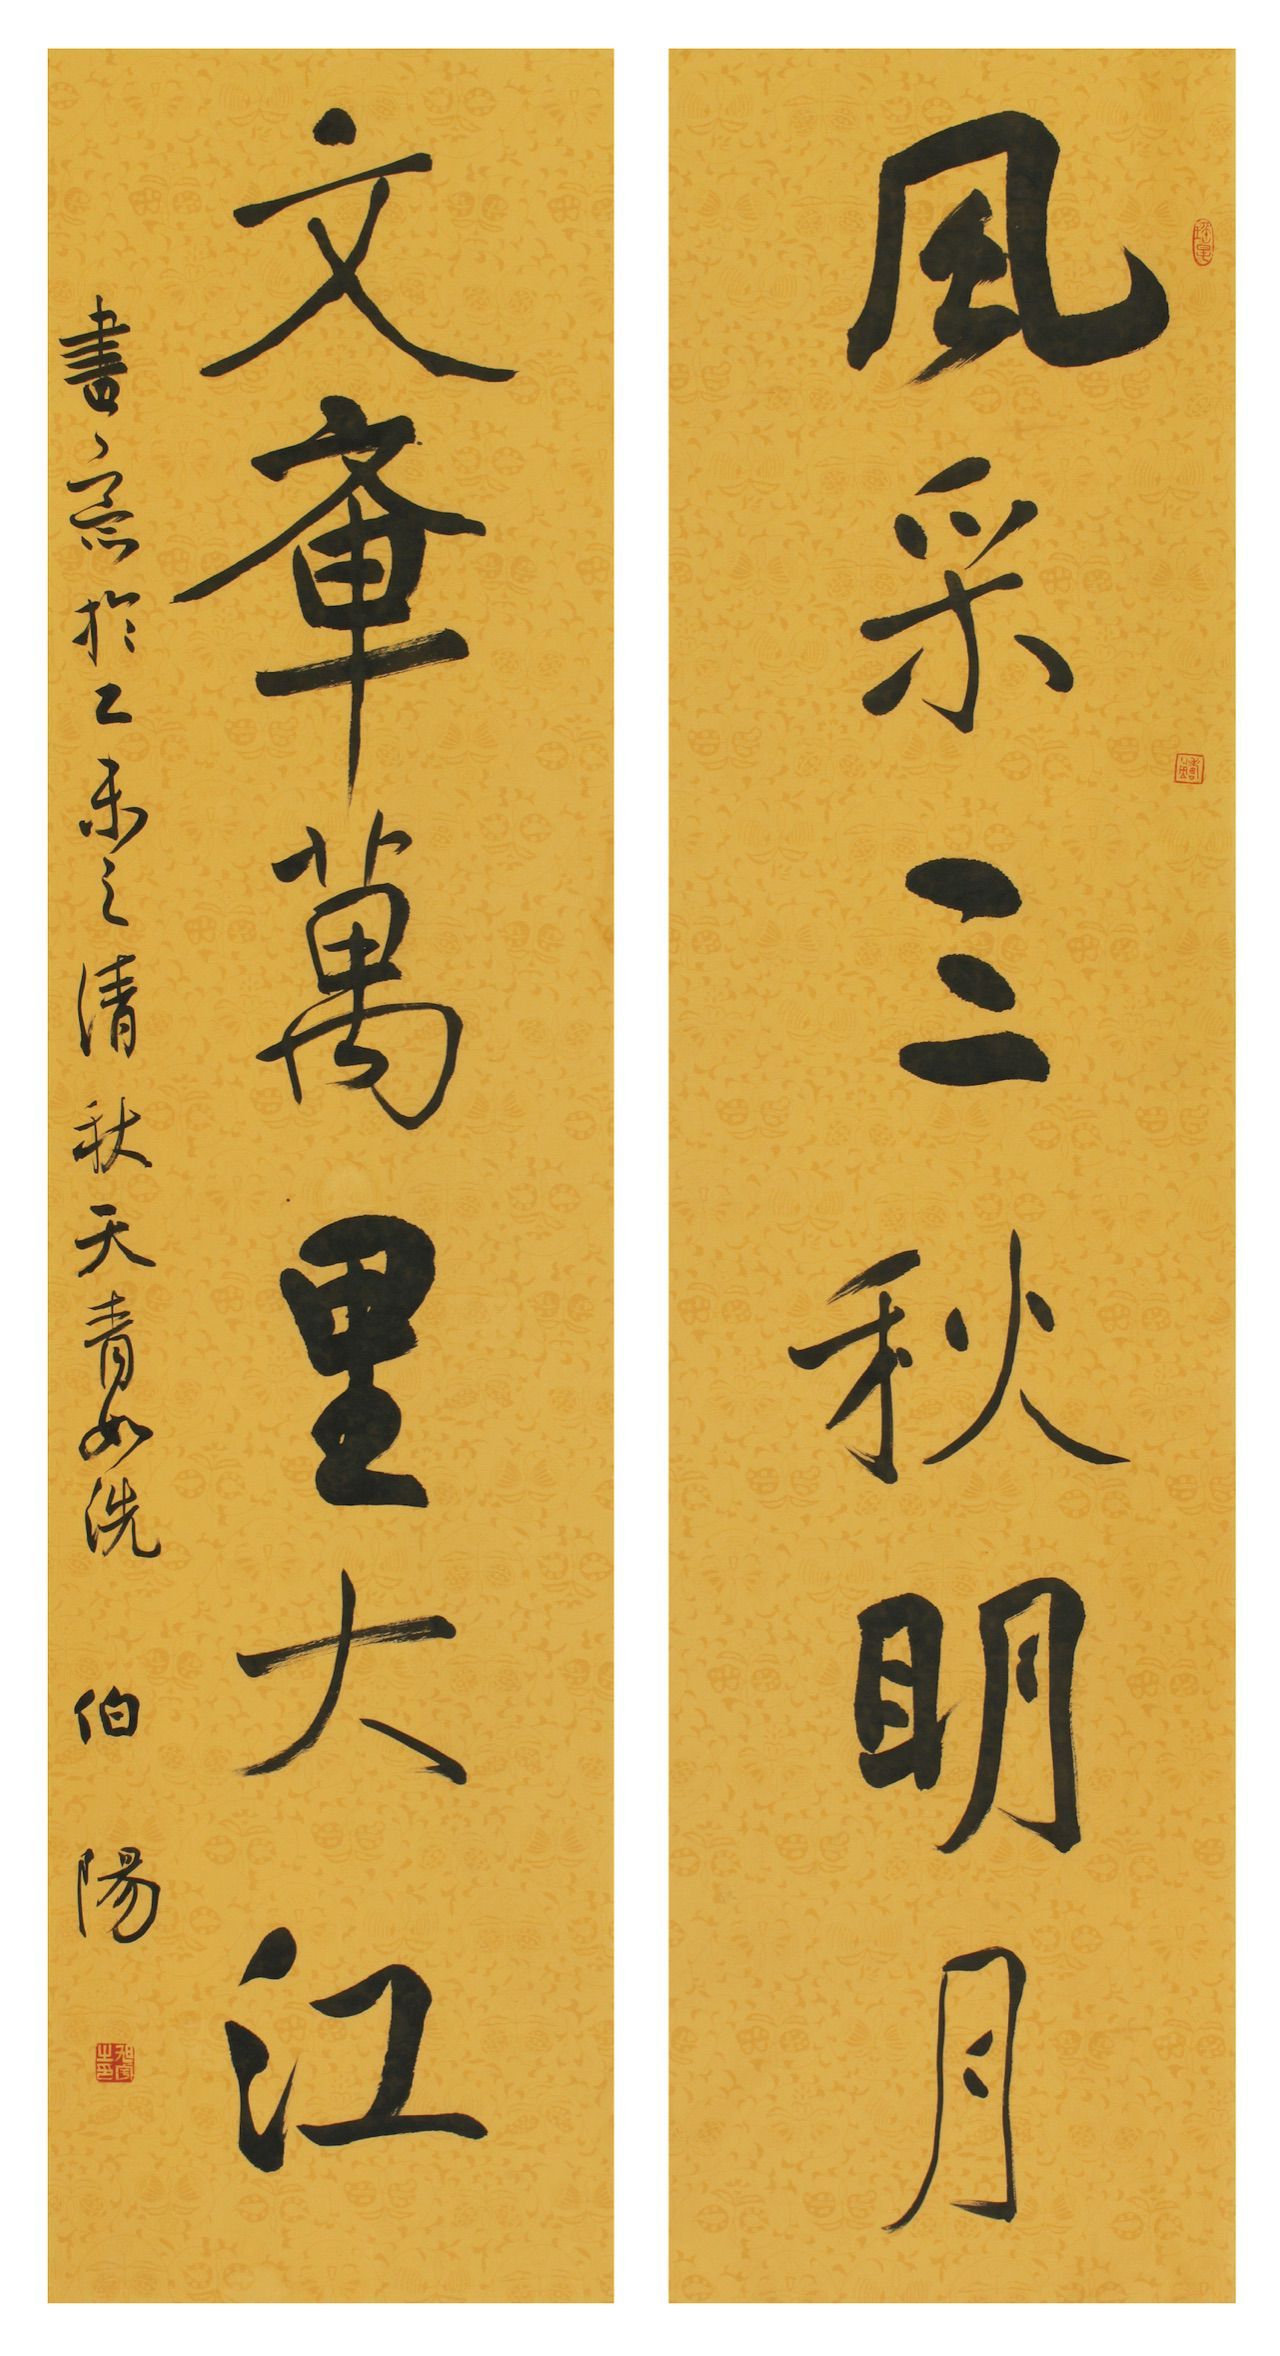 風采三秋明月
文章萬里大江
書於乙未之清秋天青如洗 伯陽